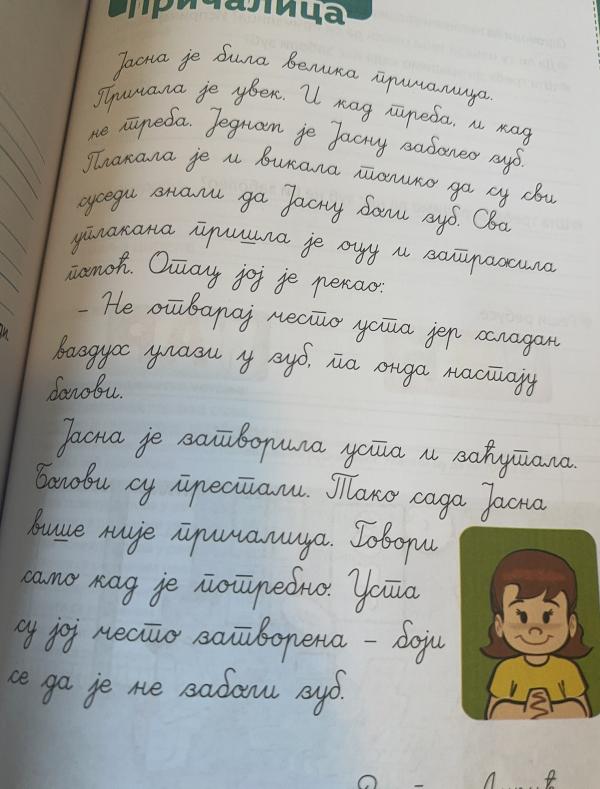 Причалица
Јасна је била велика причалица.
Причала је увек. И кад треба, и кад
не треба. Једном је Јасну заболео зуб.
Плакала је и викала толико да су сви
суседи знали да Јасну боли зуб. Сва
уплакана пришла је оцу и затражила
помоћ. Отац јој је рекао:
– Не отварај често уста јер хладан
ваздух улази у зуб, па онда настају
болови.
Јасна је затворила уста и заћутала.
Болови су престали. Тако сада Јасна
више није причалица. Говори
само кад је потребно. Уста
су јој често затворена – боји
се да је не заболи зуб.